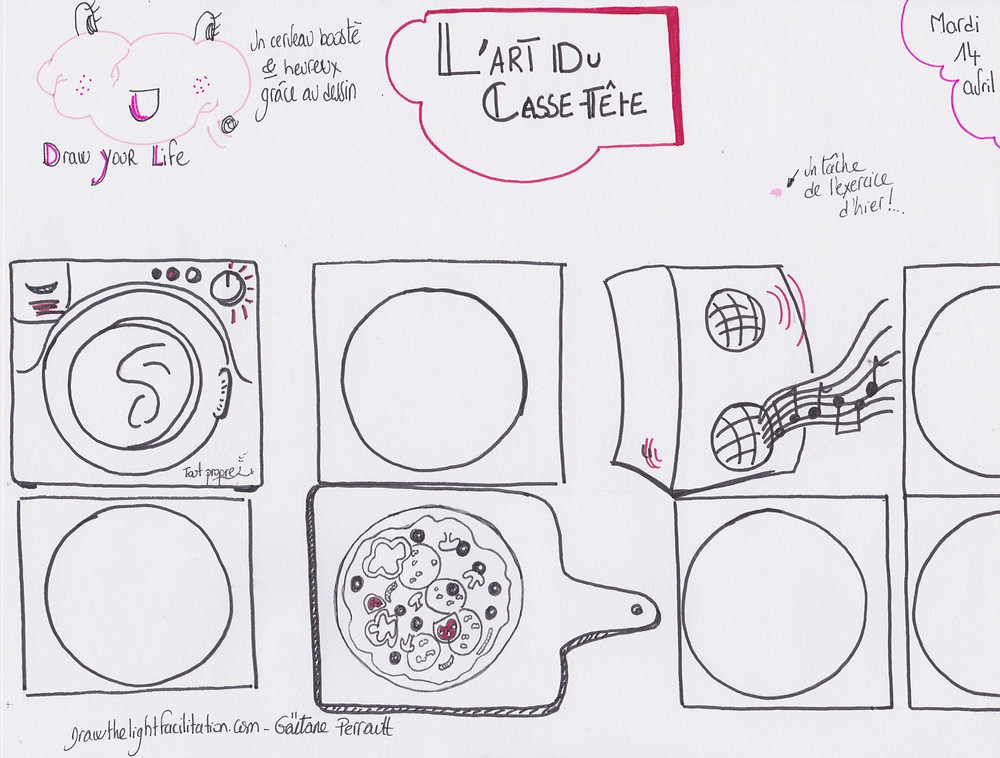 Un cerveau boosté
& heureux
grâce au dessin
Draw your Life
L'ART DU
CASSE-TÊTE
Mardi
14
avril
Un tâche
de l'exercice
d'hier!...
Tout propre
Drawthelightfacilitation.com - Gaëtane Perrault